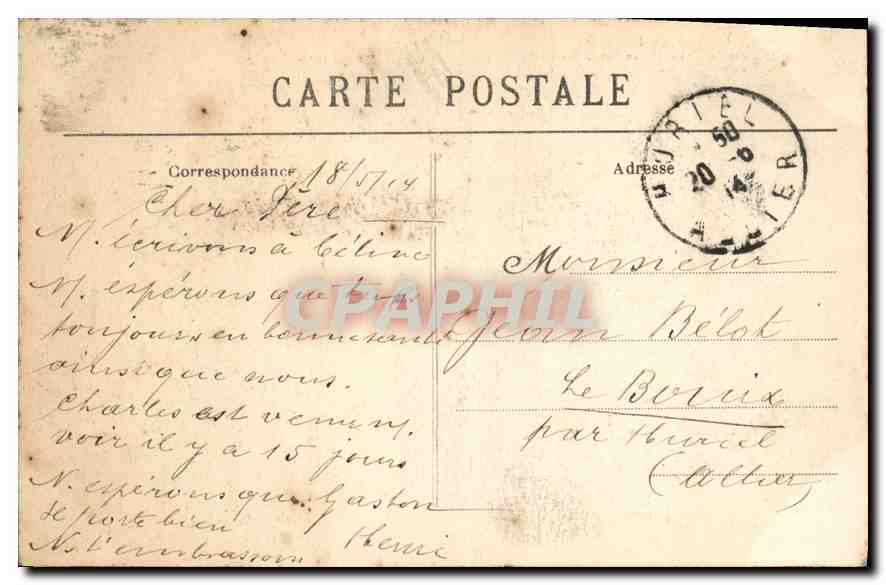 CARTE POSTALE
Correspondance
Adresse
18/5/14
HURIEL
ALLIER
20 -5
14
Cher Père
N. écrivons à Céline
N. espérons que
toujours en bonne santé
ainsi que nous.
Charles est venu n.
voir il y a 15 jours
N. espérons que Gaston
se porte bien
Ns t'embrassons Henri
Monsieur
Jean Bélot
Le Bouix
par Huriel
(Allier)
CPAPHIL